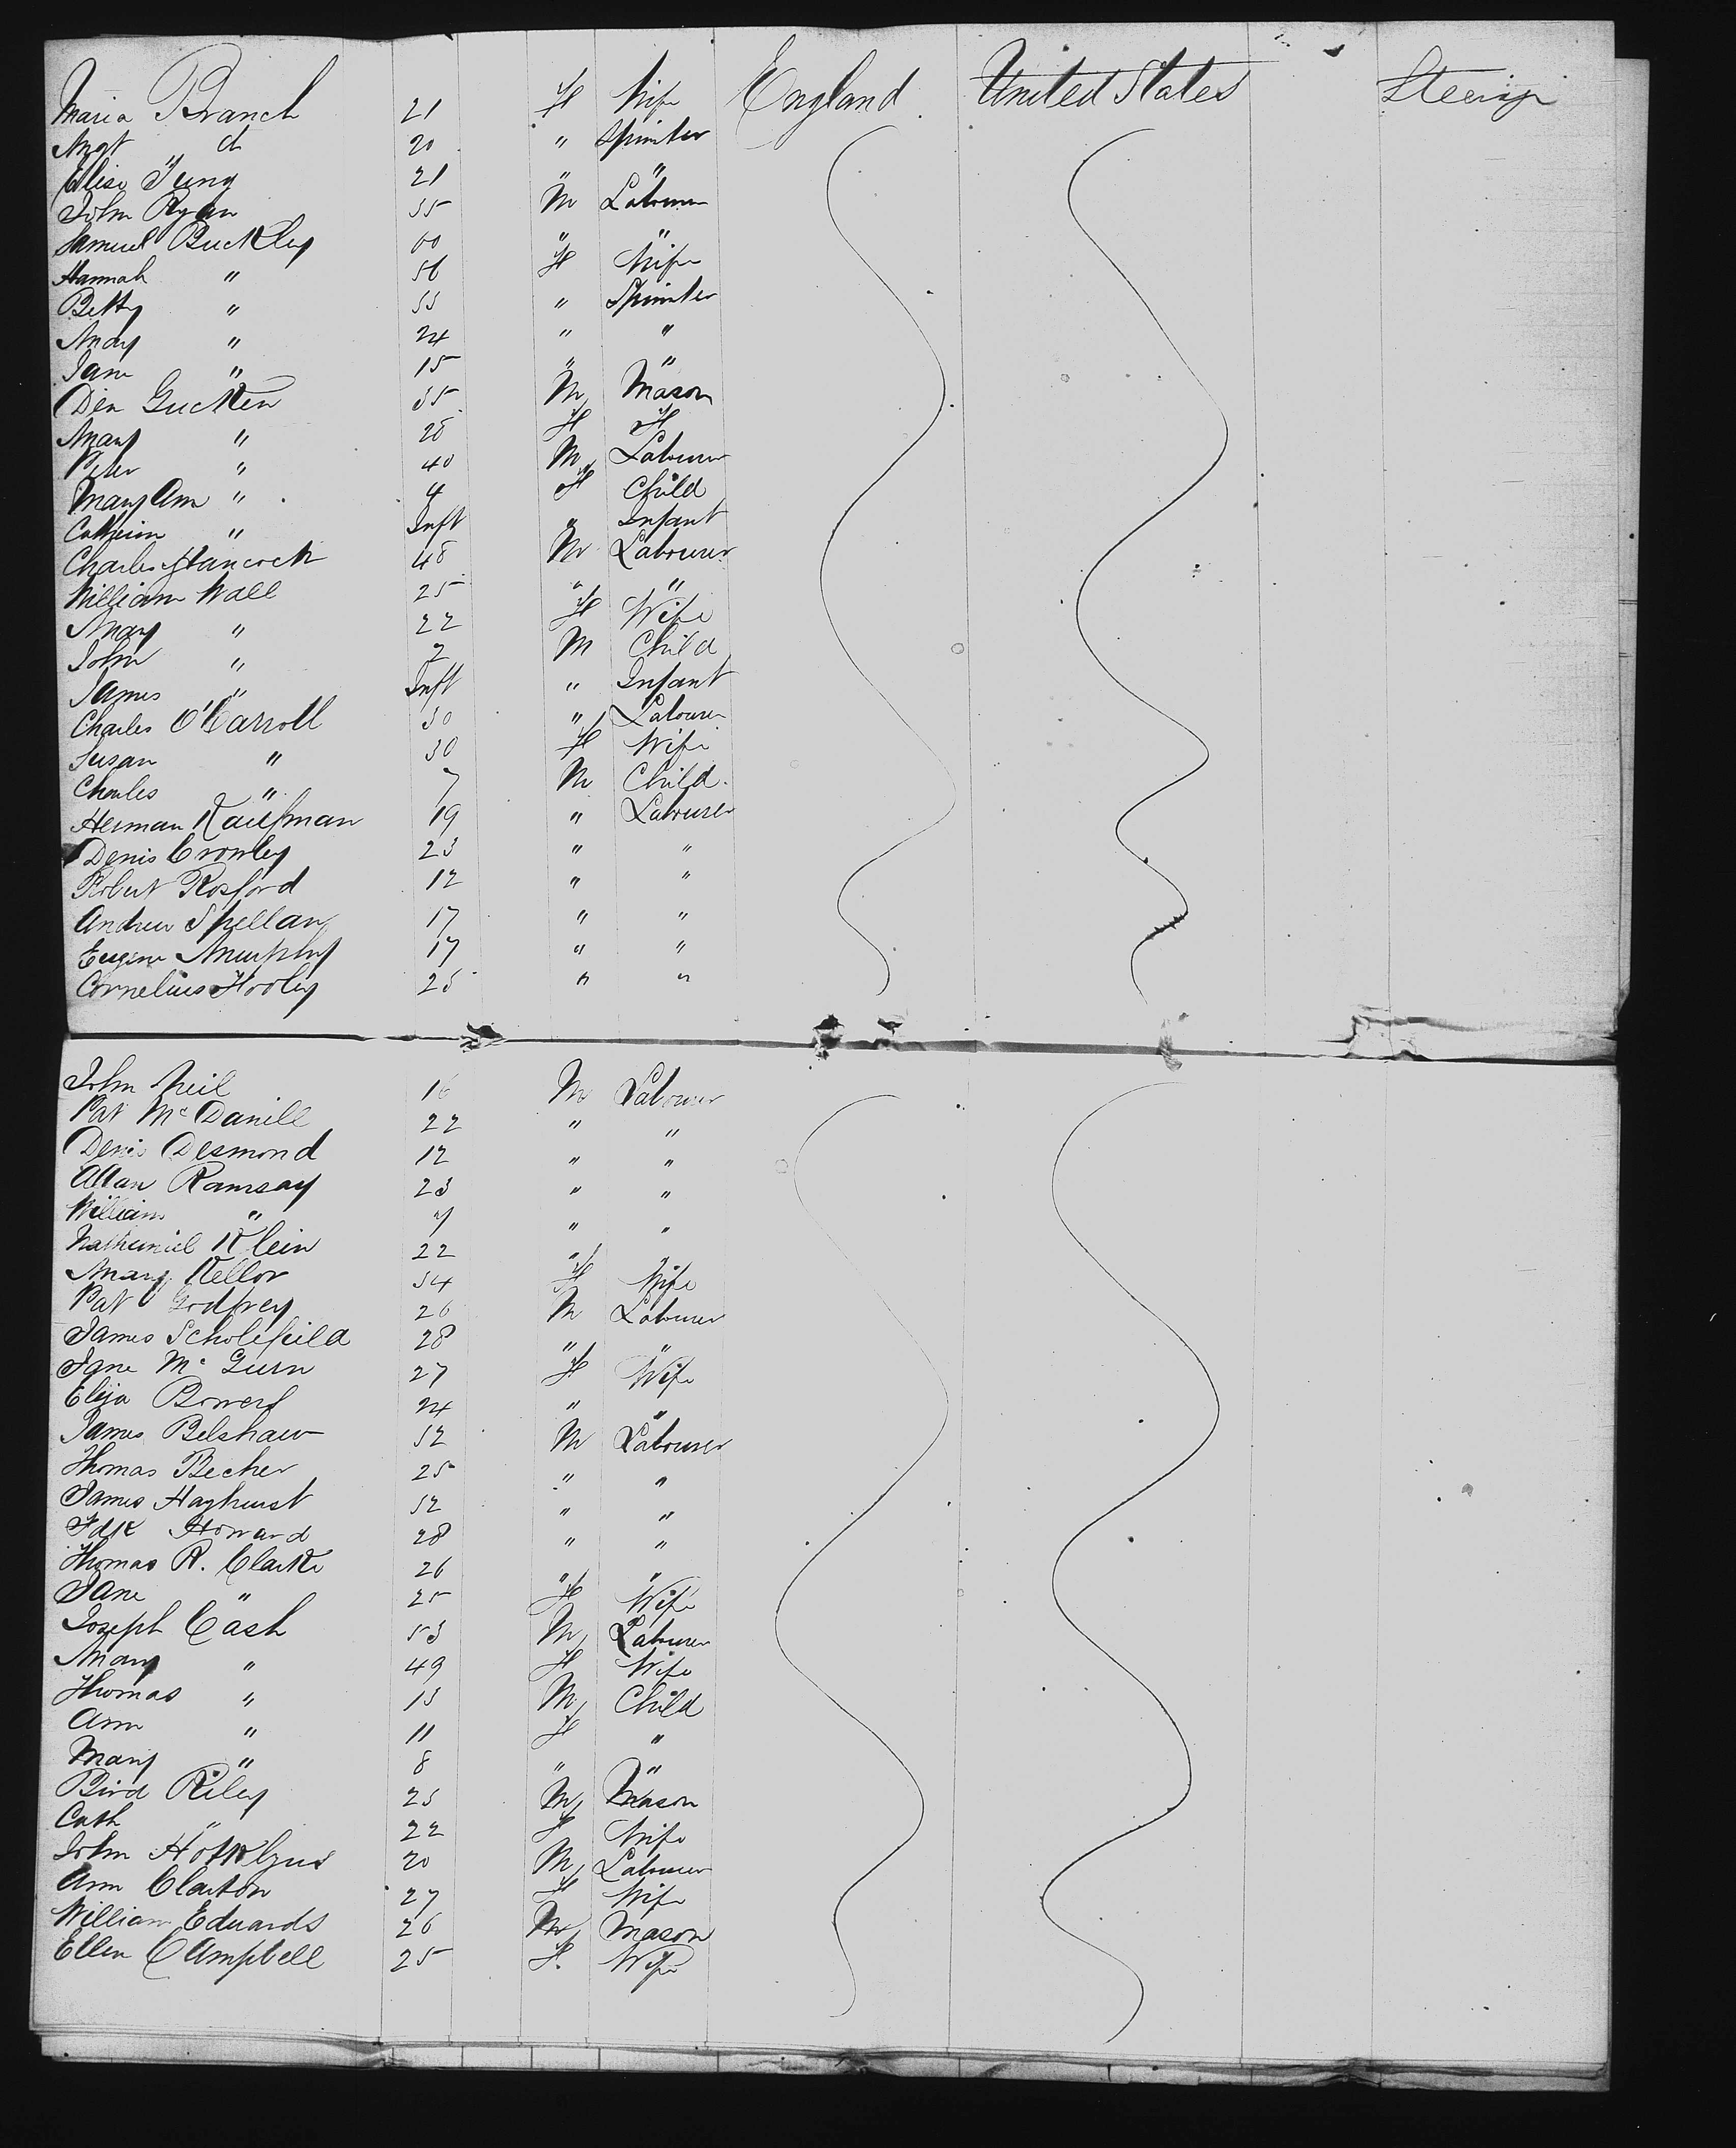 Maria Branch 21 F Wife England United States Steerage
Mgt d 20 " Spinster
Elise Jung 21 " "
John Ryan 35 M Labourer
Samuel Buckley 60 " "
Hannah " 56 F Wife
Betty " 33 " Spinster
Mary " 24 " "
Jane " 15 " "
Den Gucken 35 M Mason
Mary " 28 F
Peter " 40 M Labourer
Mary Ann " 4 F Child
" Inft " Infant
Charles Hancock 48 M Labourer
William Wall 25 " "
Mary " 22 F Wife
John " 2 M Child
James " Inft " Infant
Charles O'Carroll 30 " Labourer
Susan " 30 F Wife
Charles " 7 M Child
Herman Kaufman 19 " Labourer
Denis Crowley 23 " "
Robert Rosford 12 " "
Andrew Spellan 17 " "
Eugene Murphy 17 " "
Cornelius Hooley 25 " "
John Neil 16 M Labourer
Pat McDanill 22 " "
Denis Desmond 12 " "
Allan Ramsay 23 " "
William " " "
Nathuniel Klein 22 " "
Mary Kellor 34 F Wife
Pat Godfrey 26 M Labourer
James Scholefeild 28 " "
Jane McGurn 27 F Wife
Eliza Bowers 24 " "
James Belshaw 32 M Labourer
Thomas Becher 25 " "
James Hayhurst 32 " "
Fdk Howard 28 " "
Thomas R. Clarke 26 " "
Jane " 25 F Wife
Joseph Cash 53 M Labourer
Mary " 49 F Wife
Thomas " 13 M Child
Ann " 11 F "
Mary " 8 " "
Bird Riley 25 M Mason
Cath " 22 F Wife
John 20 M Labourer
Ann Claxton 27 F Wife
William Edwards 26 M Mason
Ellen Campbell 25 F. Wife